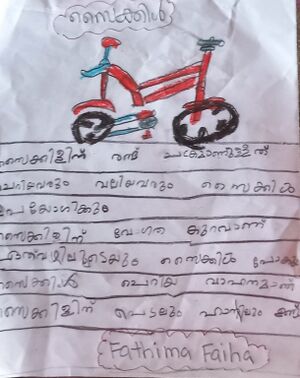 സൈക്കിൾ
സൈക്കിളിന് രണ്ട് ചക്രമാണുള്ളത്
ചെറിയവരും വലിയവരും സൈക്കിൾ
ഉപയോഗിക്കും
സൈക്കിളിന് വേഗത കുറവാണ്
സൈക്കിൾ
സൈക്കിൾ ചെറിയ വാഹനമാണ്
സൈക്കിളിന് പെടലും
Fathima Faiha